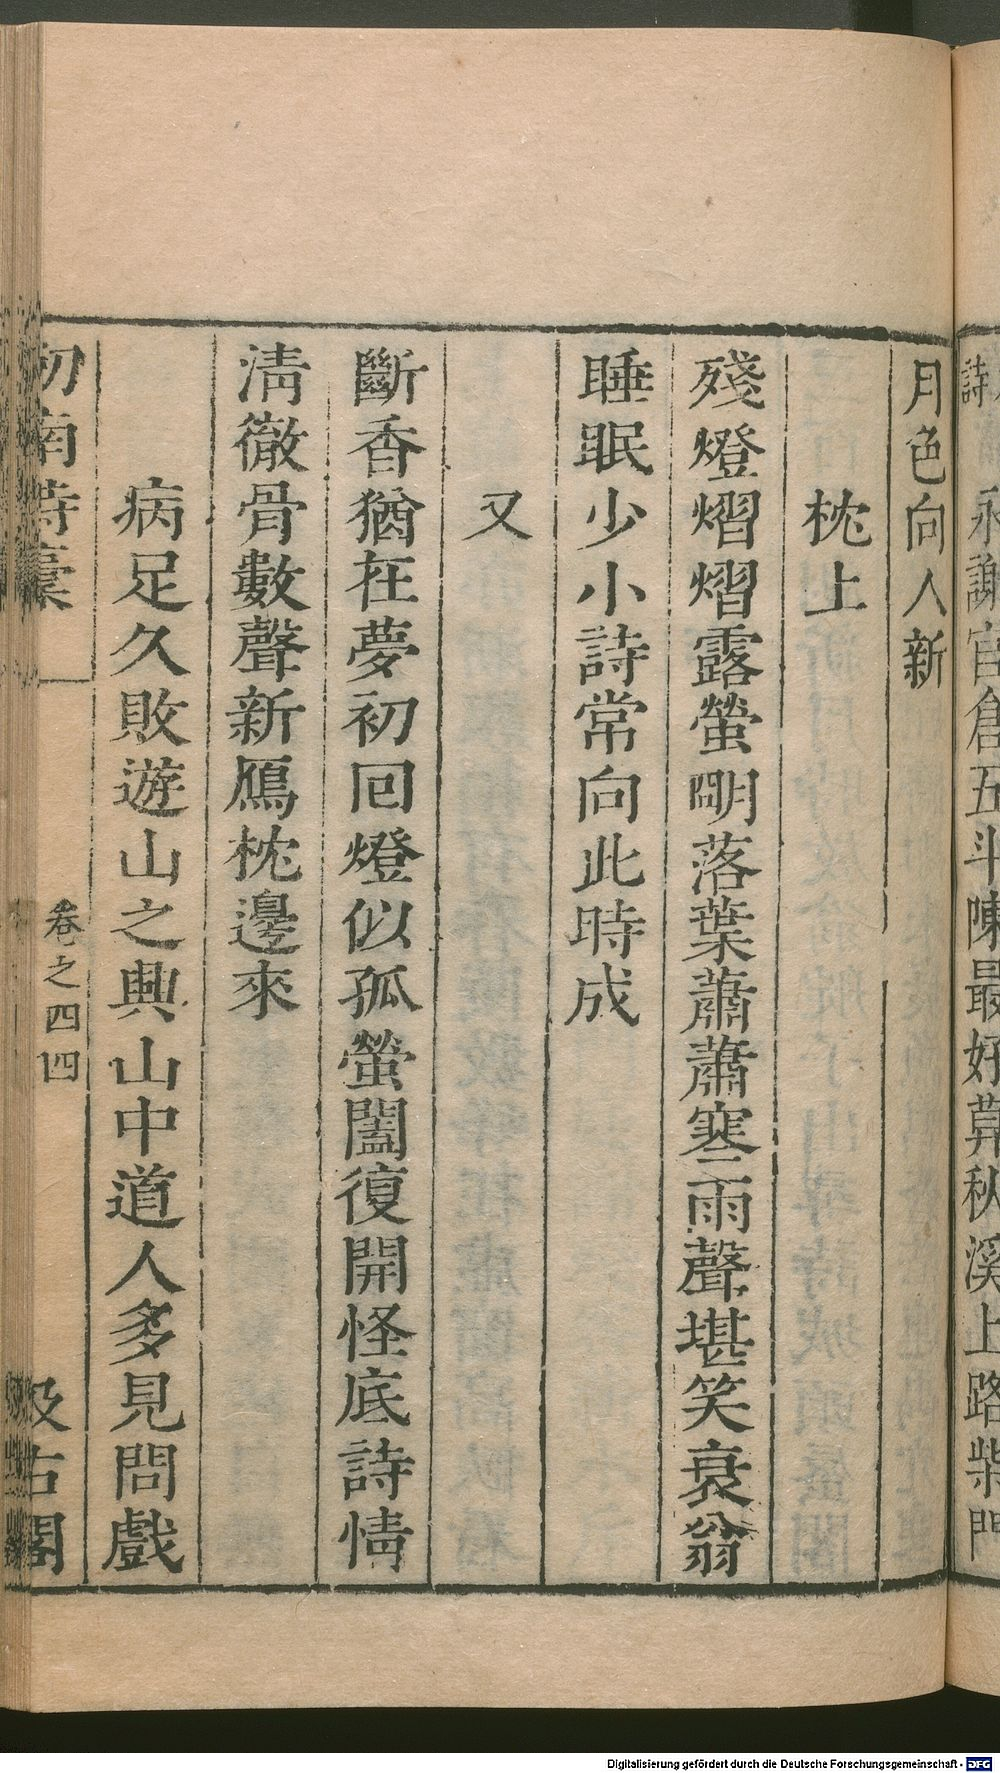 詩
永謝官倉五斗陳最好算秋溪上路柴門
月色向人新
枕上
殘燈熠熠露螢明落葉蕭蕭寒雨聲堪笑衰翁
睡眠少小詩常向此時成
又
斷香猶在夢初回燈似孤螢闔復開怪底詩情
淸徹骨數聲新鴈枕邊來
病足久敗遊山之興山中道人多見問戲
劒南詩稾 卷之四四 汲古閣
Digitalisierung gefördert durch die Deutsche Forschungsgemeinschaft - DFG